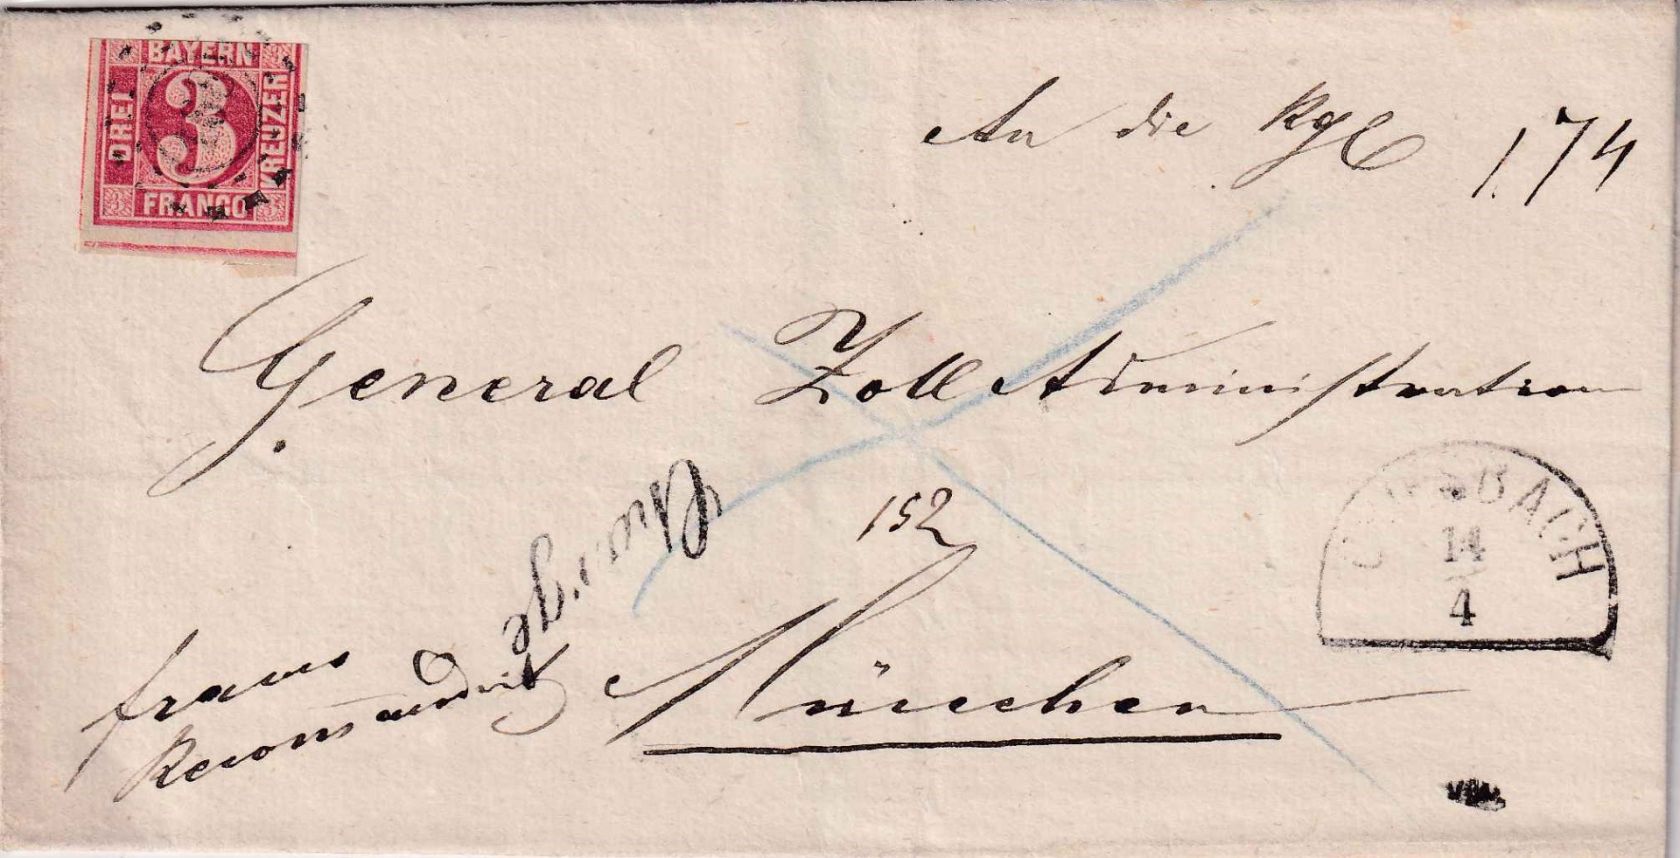 BAYERN
DREI
3
KREUZER
FRANCO
An die Kgl
174
General Zoll Administration
Chargé
152
franco
Recommandirt
München
BACH
14
4